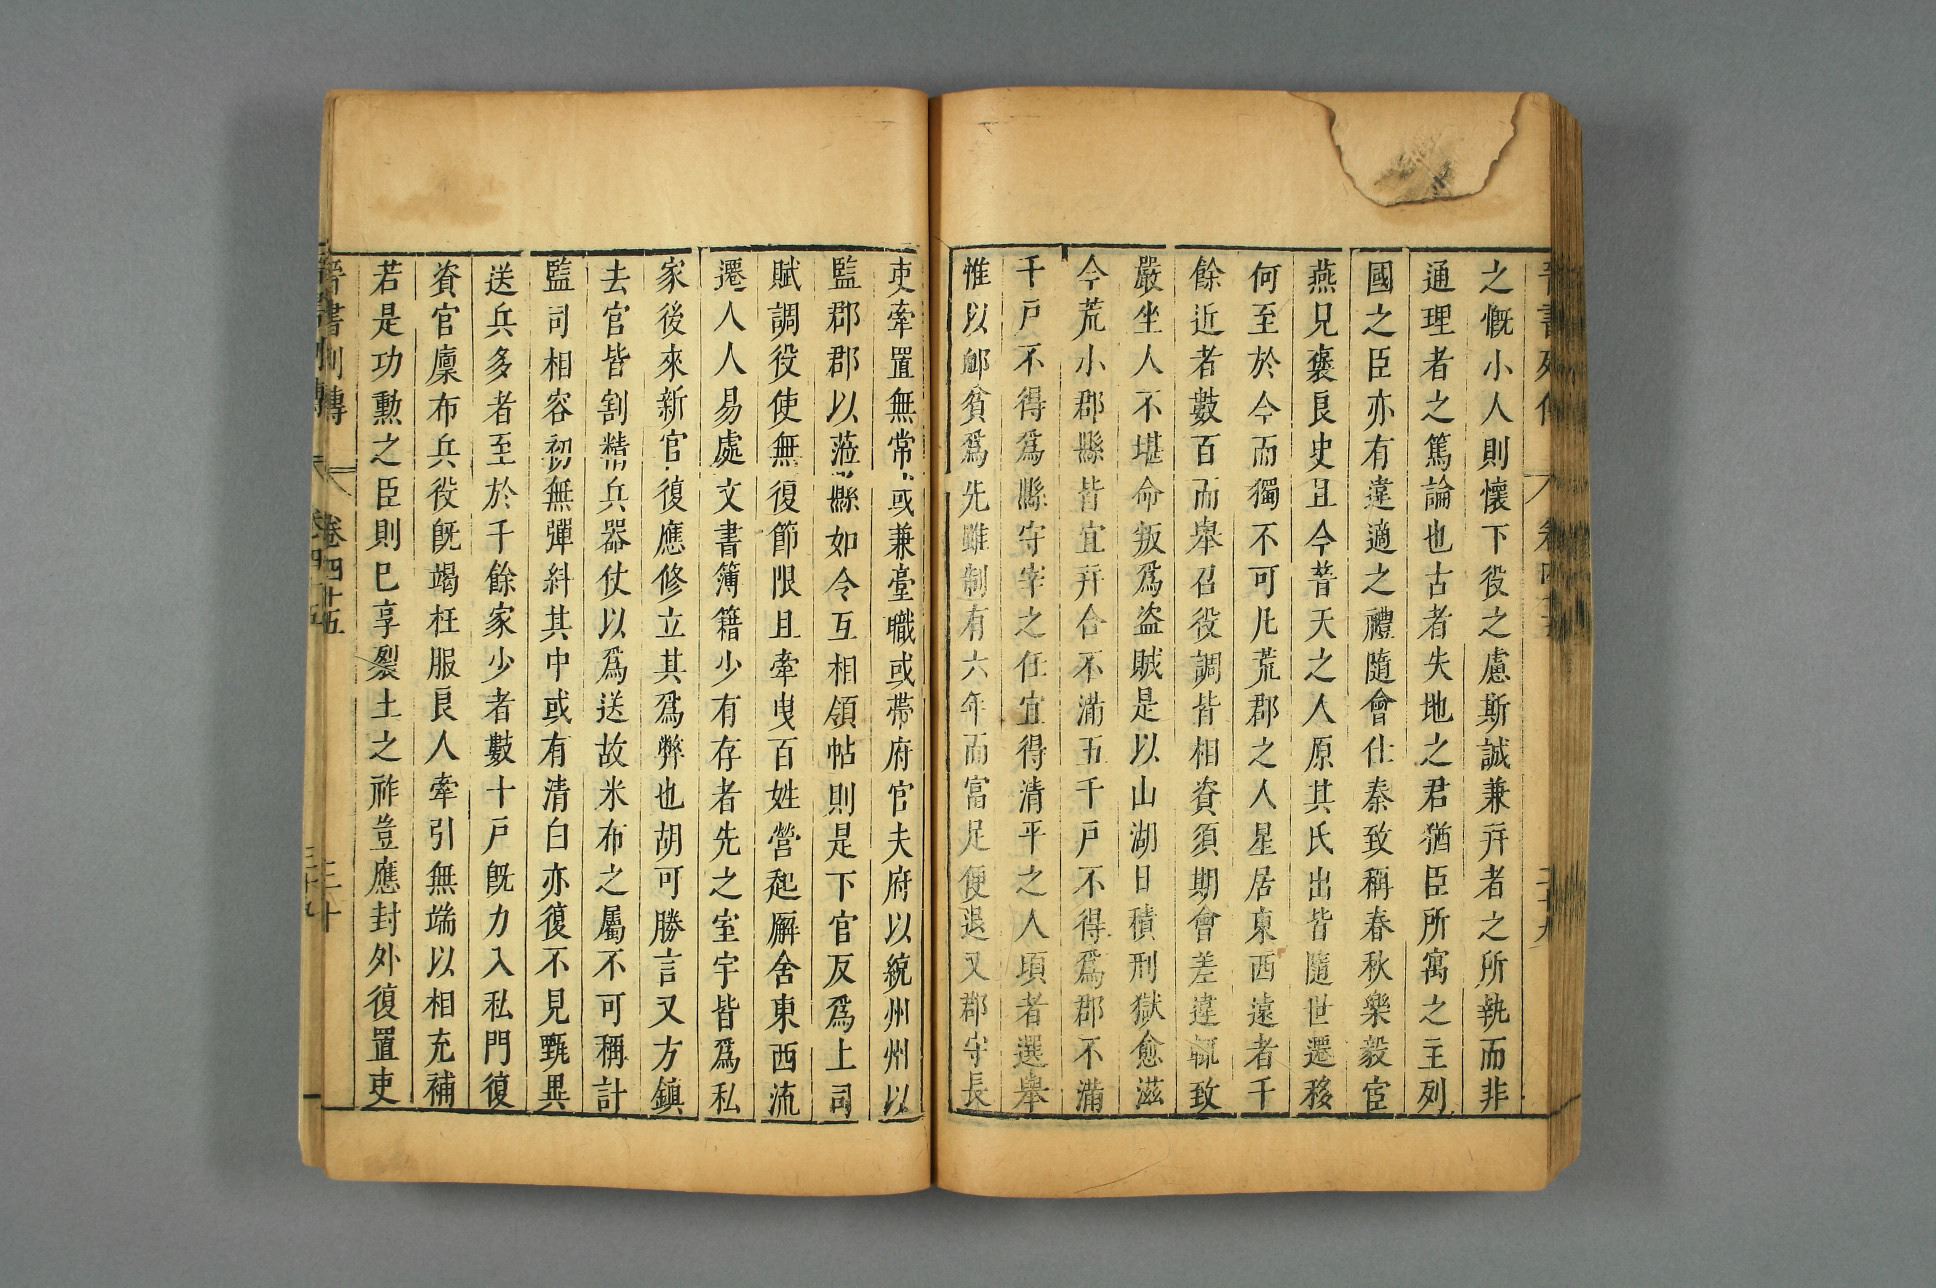 晉書列傳 卷四十五 二十九
之慨小人則懷下役之慮斯誠兼幷者之所執而非
通理者之篤論也古者失地之君猶臣所寓之主列
國之臣亦有違適之禮隨會仕秦致稱春秋樂毅宦
燕見褒良史且今普天之人原其氏出皆隨世遷移
何至於今而獨不可凡荒郡之人星居東西遠者千
餘近者數百而舉召役調皆相資須期會差違輒致
嚴坐人不堪命叛爲盜賊是以山湖日積刑獄愈滋
今荒小郡縣皆宜幷合不滿五千戶不得爲郡不滿
千戶不得爲縣守宰之任宜得清平之人頃者選舉
惟以卹貧爲先雖制有六年而富足便退又郡守長
吏牽置無常或兼臺職或帶府官夫府以統州州以
監郡郡以蒞縣如令互相領帖則是下官反爲上司
賦調役使無復節限且牽曳百姓營起廨舍東西流
遷人人易處文書簿籍少有存者先之室宇皆爲私
家後來新官復應修立其爲弊也胡可勝言又方鎮
去官皆割精兵器仗以爲送故米布之屬不可稱計
監司相容初無彈糾其中或有清白亦復不見甄異
送兵多者至於千餘家少者數十戶旣力入私門復
資官廩布兵役旣竭枉服良人牽引無端以相充補
若是功勳之臣則已享裂土之祚豈應封外復置吏
晉書列傳 卷四十五 三十